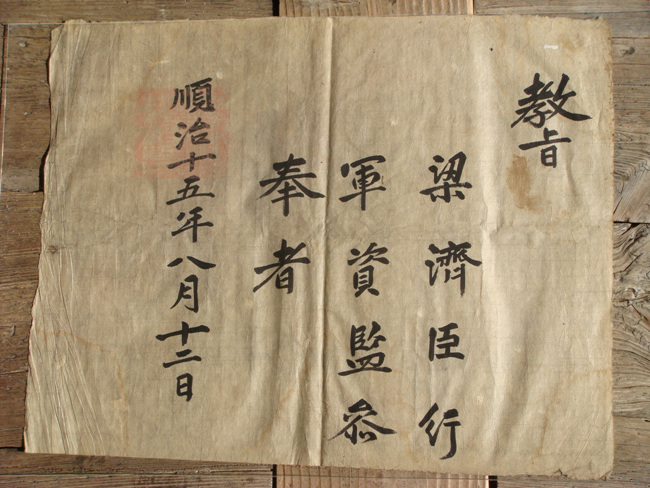 教旨
梁濟臣行
軍資監叅
奉者
順治十五年八月十二日